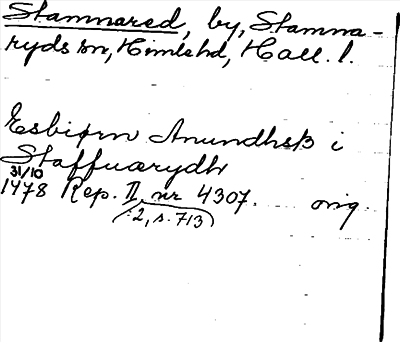 Stamnared, by, Stamna-
ryds sn, Himle hd, Hall. l.
Esbiørn Anundhsß i
Staffnærydh
31/10
1478 Rep. II nr 4307. orig.
(:2, s. 713)